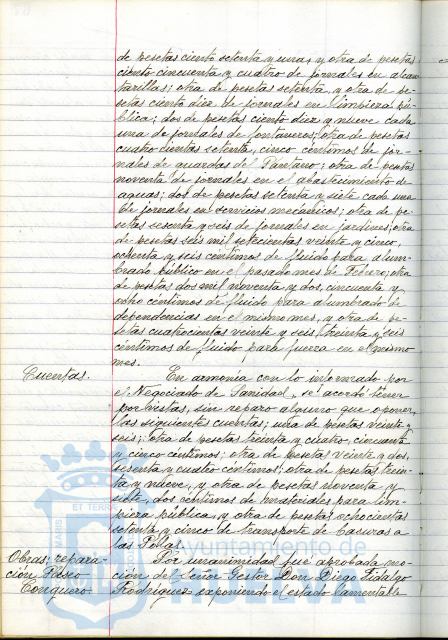 de pesetas ciento setenta y una; y otra de pesetas
ciento cincuenta y cuatro de jornales en alcan
tarillas; otra de pesetas setenta, y otra de pe-
setas ciento diez de jornales en limpieza pú-
blica; dos de pesetas ciento diez y nueve cada
una de jornales de fontaneros; otra de pesetas
cuatrocientas setenta, cinco céntimos de jor-
nales de guardas del Pantano; otra de pesetas
noventa de jornales en el abastecimiento de
aguas; dos de pesetas setenta y siete cada una
de jornales en servicios mecánicos; otra de pe-
setas sesenta y seis de jornales en jardines; otra
de pesetas seis mil setecientas veinte y cinco,
ochenta y seis céntimos de fluido para alum-
brado público en el pasado mes de Febrero; otra
de pesetas dos mil noventa y dos, cincuenta y
ocho céntimos de fluido para alumbrado de
dependencias en el mismo mes, y otra de pe-
setas cuatrocientas veinte y seis, treinta y seis
céntimos de fluido para fuerza en el mismo
mes.
Cuentas. En armonía con lo informado por
el Negociado de Sanidad, se acordó tener
por vistas, sin reparo alguno que oponer,
las siguientes cuentas; una de pesetas veinte y
seis; otra de pesetas treinta y cuatro, cincuenta
y cinco céntimos; otra de pesetas veinte y dos,
sesenta y cuatro céntimos; otra de pesetas trein-
ta y nueve, y otra de pesetas noventa y
siete, dos céntimos de materiales para lim-
pieza pública, y otra de pesetas ochocientas
setenta y cinco de transporte de basuras a
las Pollas.
Obras; repara- Por unanimidad fue aprobada mo-
ción Paseo ción del Señor Gestor Don Diego Fidalgo
Conquero. Rodríguez exponiendo el estado lamentable
Ayuntamiento de
HUELVA